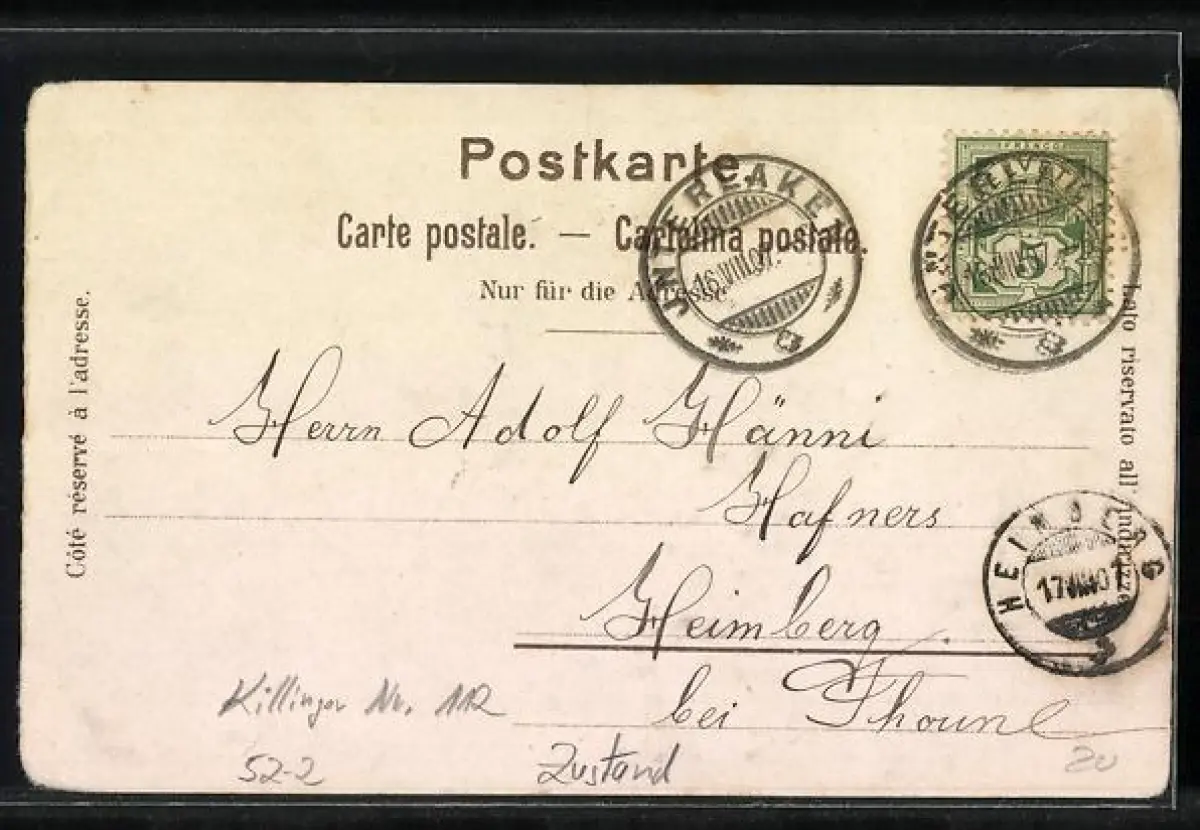 Postkarte.
Carte postale. — Cartolina postale.
Nur für die Adresse
Côté réservé à l'adresse.
lato riservato all' indirizzo
FRANCO
HELVETIA
5
JNTERLAKEN
16.VIII.07.
HEIMBERG
17.VIII.07
Herrn Adolf Hänni
Hafners
Heimberg
bei Thoune
Killinger Nr. 112
52-2
Zustand
20